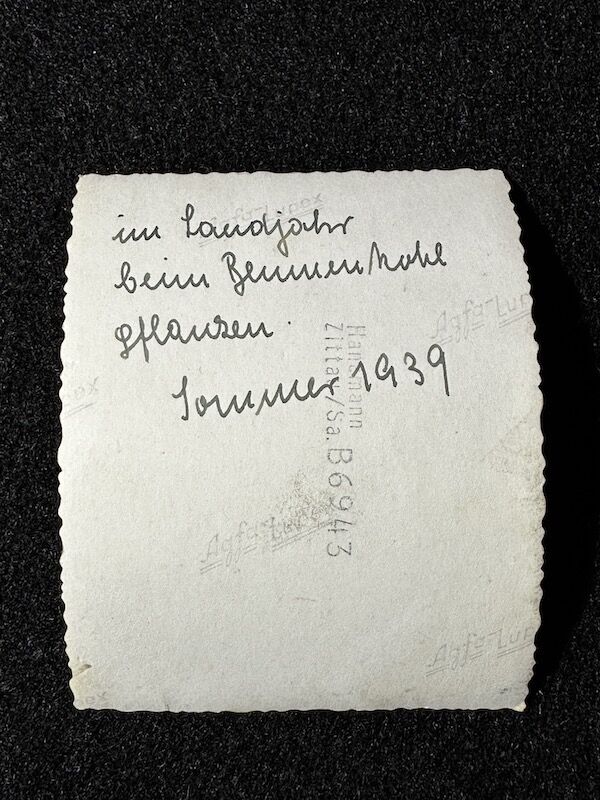 im Landjahr
beim Blumenkohl
pflanzen.
Sommer 1939
Hansmann
Zittau/Sa.
B6943
Agfa-Lupex
Agfa-Lupex
Agfa-Lupex
Agfa-Lupex